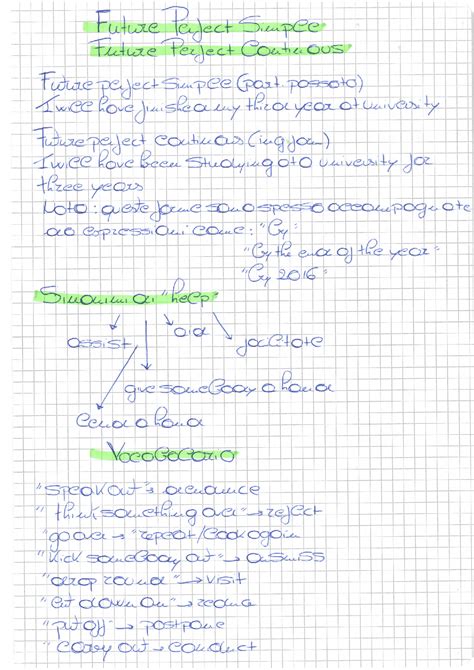 Future Perfect Simple
Future Perfect Continous
Future perfect Simple (part. passato)
I will have finished my third year at university
Future perfect continous (ing form)
I will have been studying at university for
three years
Nota: queste forme sono spesso accompagnate
ad espressioni come: "By"
"By the end of the year"
"By 2016"
Sinonimi di "help"
assist
aid
facilitate
give somebody a hand
lend a hand
Vocabolario
"speak out" → denounce
"think something over" → reject
"go over" → "repeat/look again
"kick somebody out" → dismiss
"drop round" → visit
"put off" → postpone
"carry out" → conduct